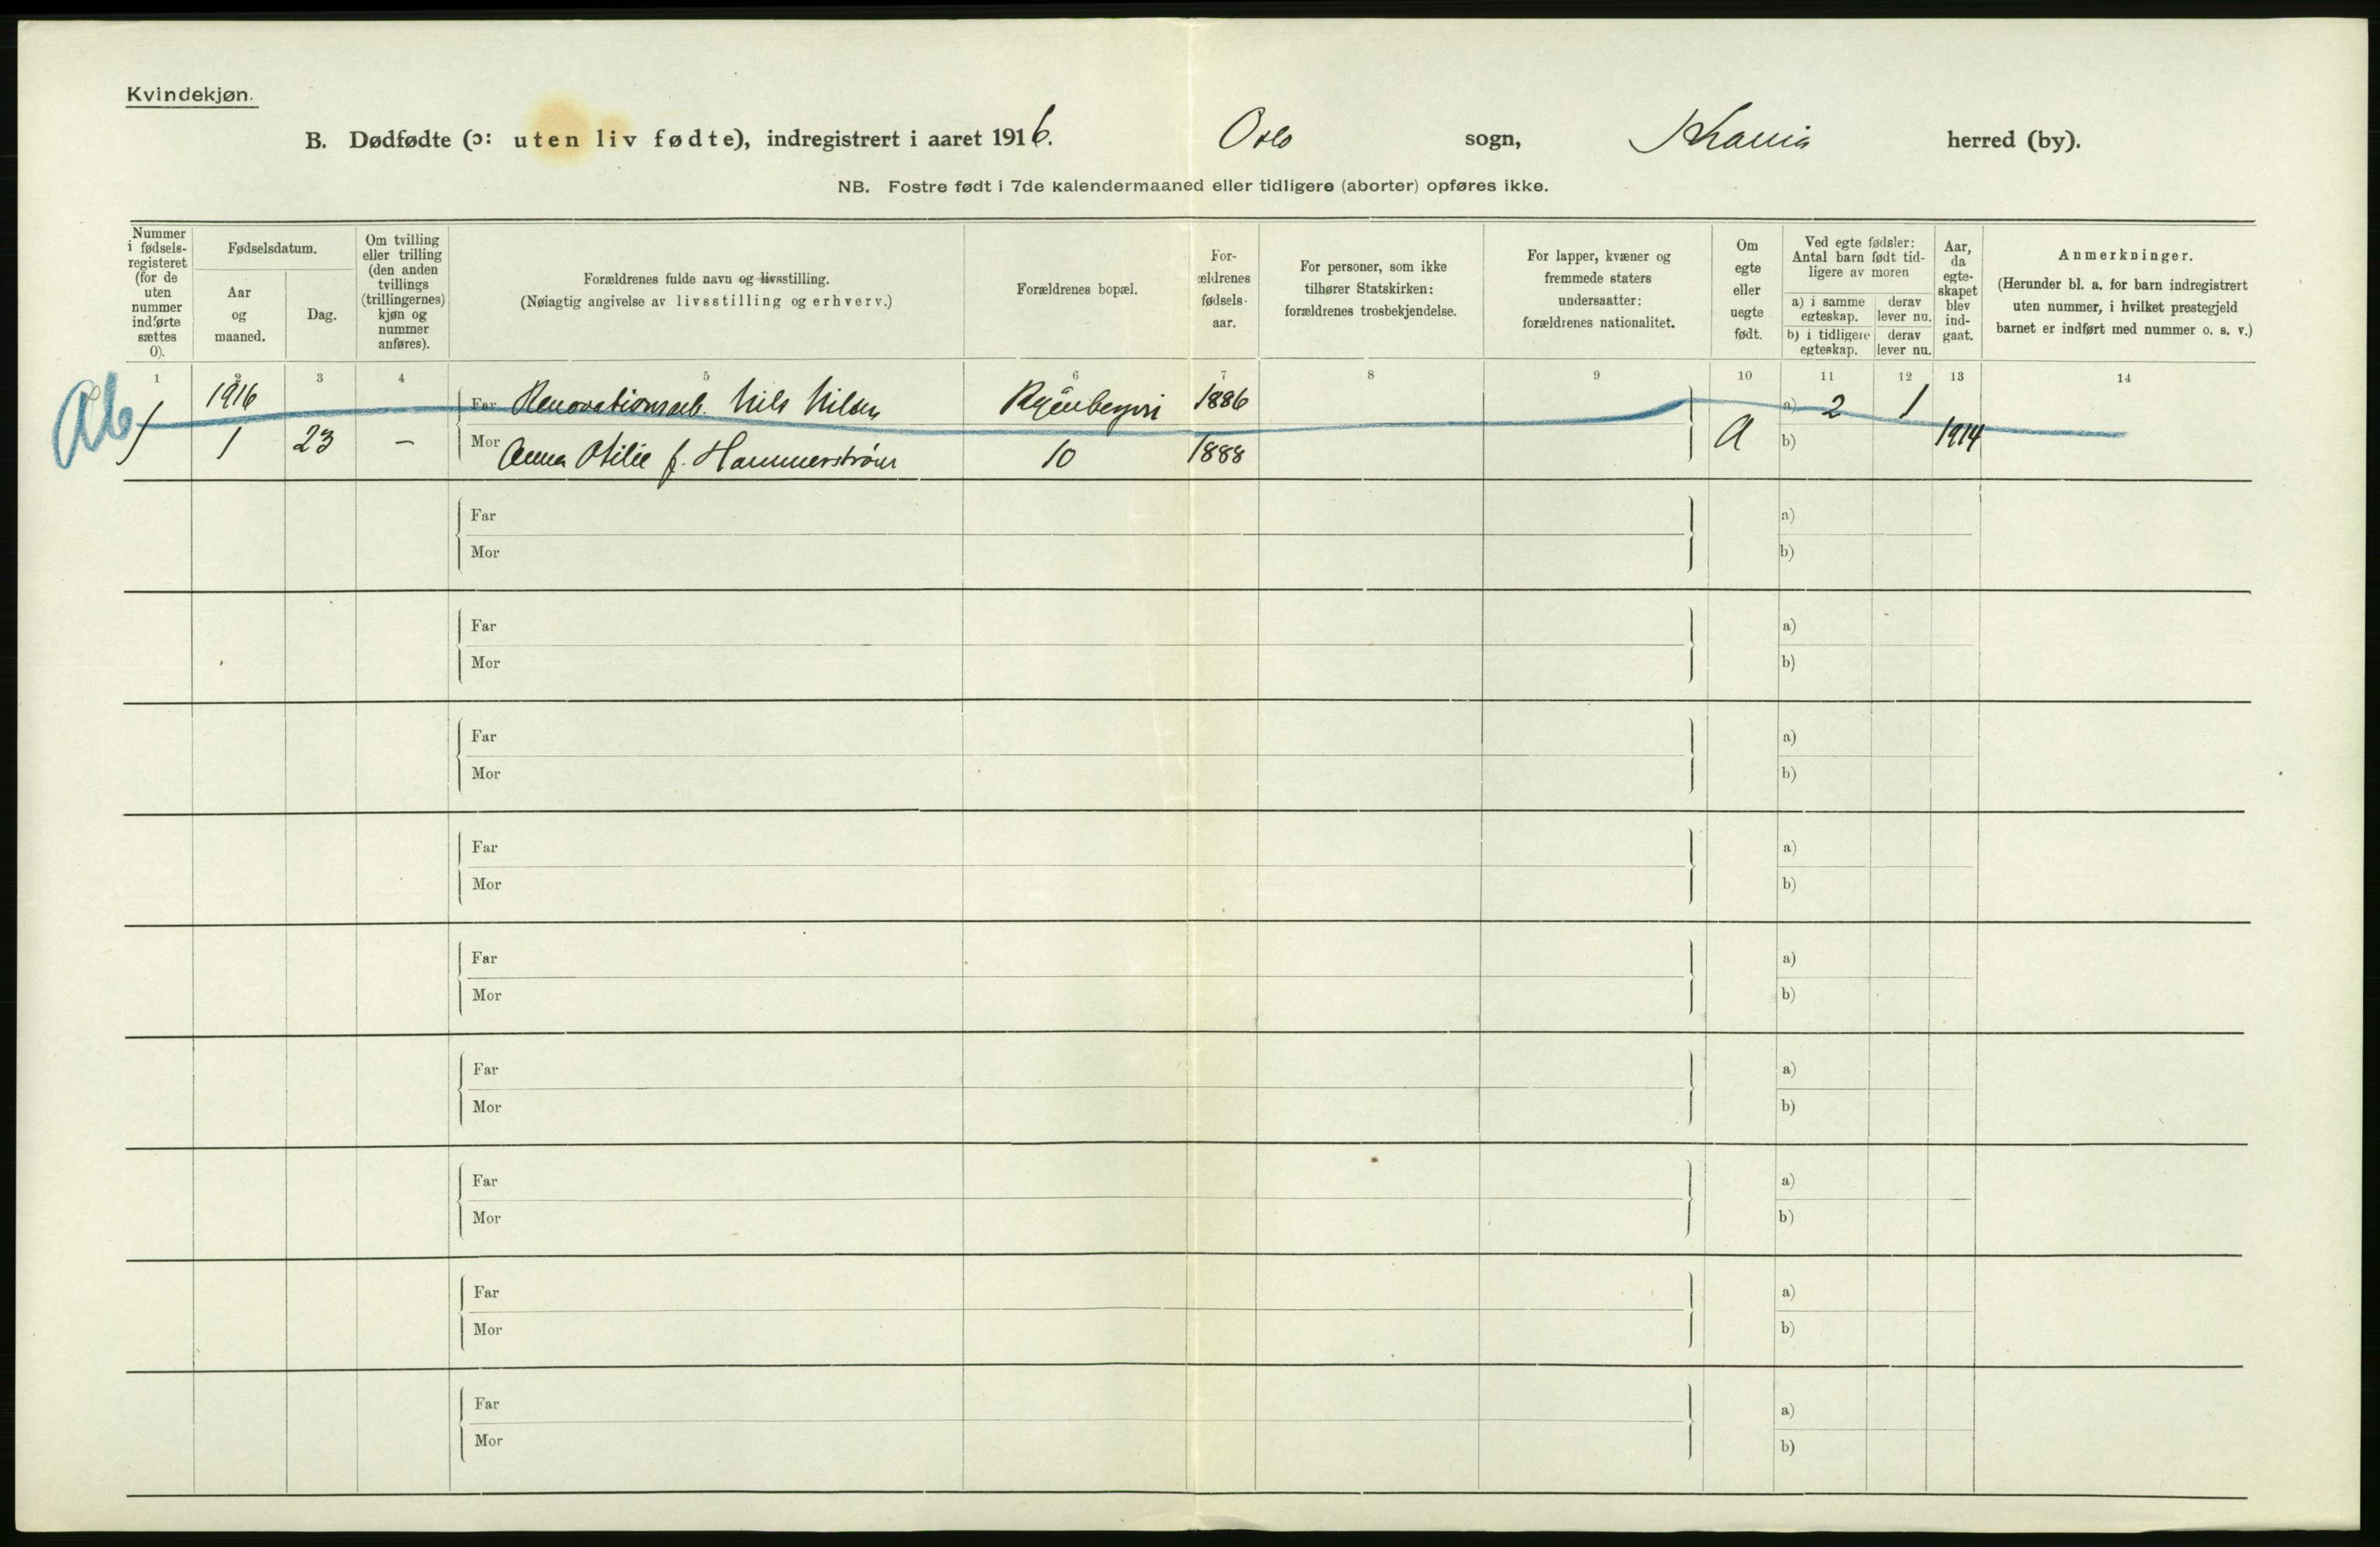 Kvindekjøn.
B. Dødfødte (ɔ: uten liv fødte), indregistrert i aaret 1916. Oslo sogn, Kr.ania herred (by).
NB. Fostre født i 7de kalendermaaned eller tidligere (aborter) opføres ikke.
Nummer i fødsels-registeret (for de uten nummer indførte sættes 0).
Fødselsdatum.
Aar og maaned.
Dag.
Om tvilling eller trilling (den anden tvillings (trillingernes) kjøn og nummer anføres).
Forældrenes fulde navn og livsstilling.
(Nøiagtig angivelse av livsstilling og erhverv.)
Forældrenes bopæl.
For-ældrenes fødsels-aar.
For personer, som ikke tilhører Statskirken: forældrenes trosbekjendelse.
For lapper, kvæner og fremmede staters undersaatter: forældrenes nationalitet.
Om egte eller uegte født.
Ved egte fødsler: Antal barn født tid-ligere av moren
a) i samme egteskap.
derav lever nu.
b) i tidligere egteskap.
derav lever nu.
Aar, da egte-skapet blev ind-gaat.
Anmerkninger.
(Herunder bl. a. for barn indregistrert uten nummer, i hvilket prestegjeld barnet er indført med nummer o. s. v.)
1 2 3 4 5 6 7 8 9 10 11 12 13 14
Ab
1916 Far Renovationsarb. Nils Nilsen 1886 a) 2 1
1 1 23 – Mor Anna Otilie f. Hammerstrøm 10 1888 A b) 1914
Far a)
Mor b)
Far a)
Mor b)
Far a)
Mor b)
Far a)
Mor b)
Far a)
Mor b)
Far a)
Mor b)
Far a)
Mor b)
Far a)
Mor b)
Far a)
Mor b)